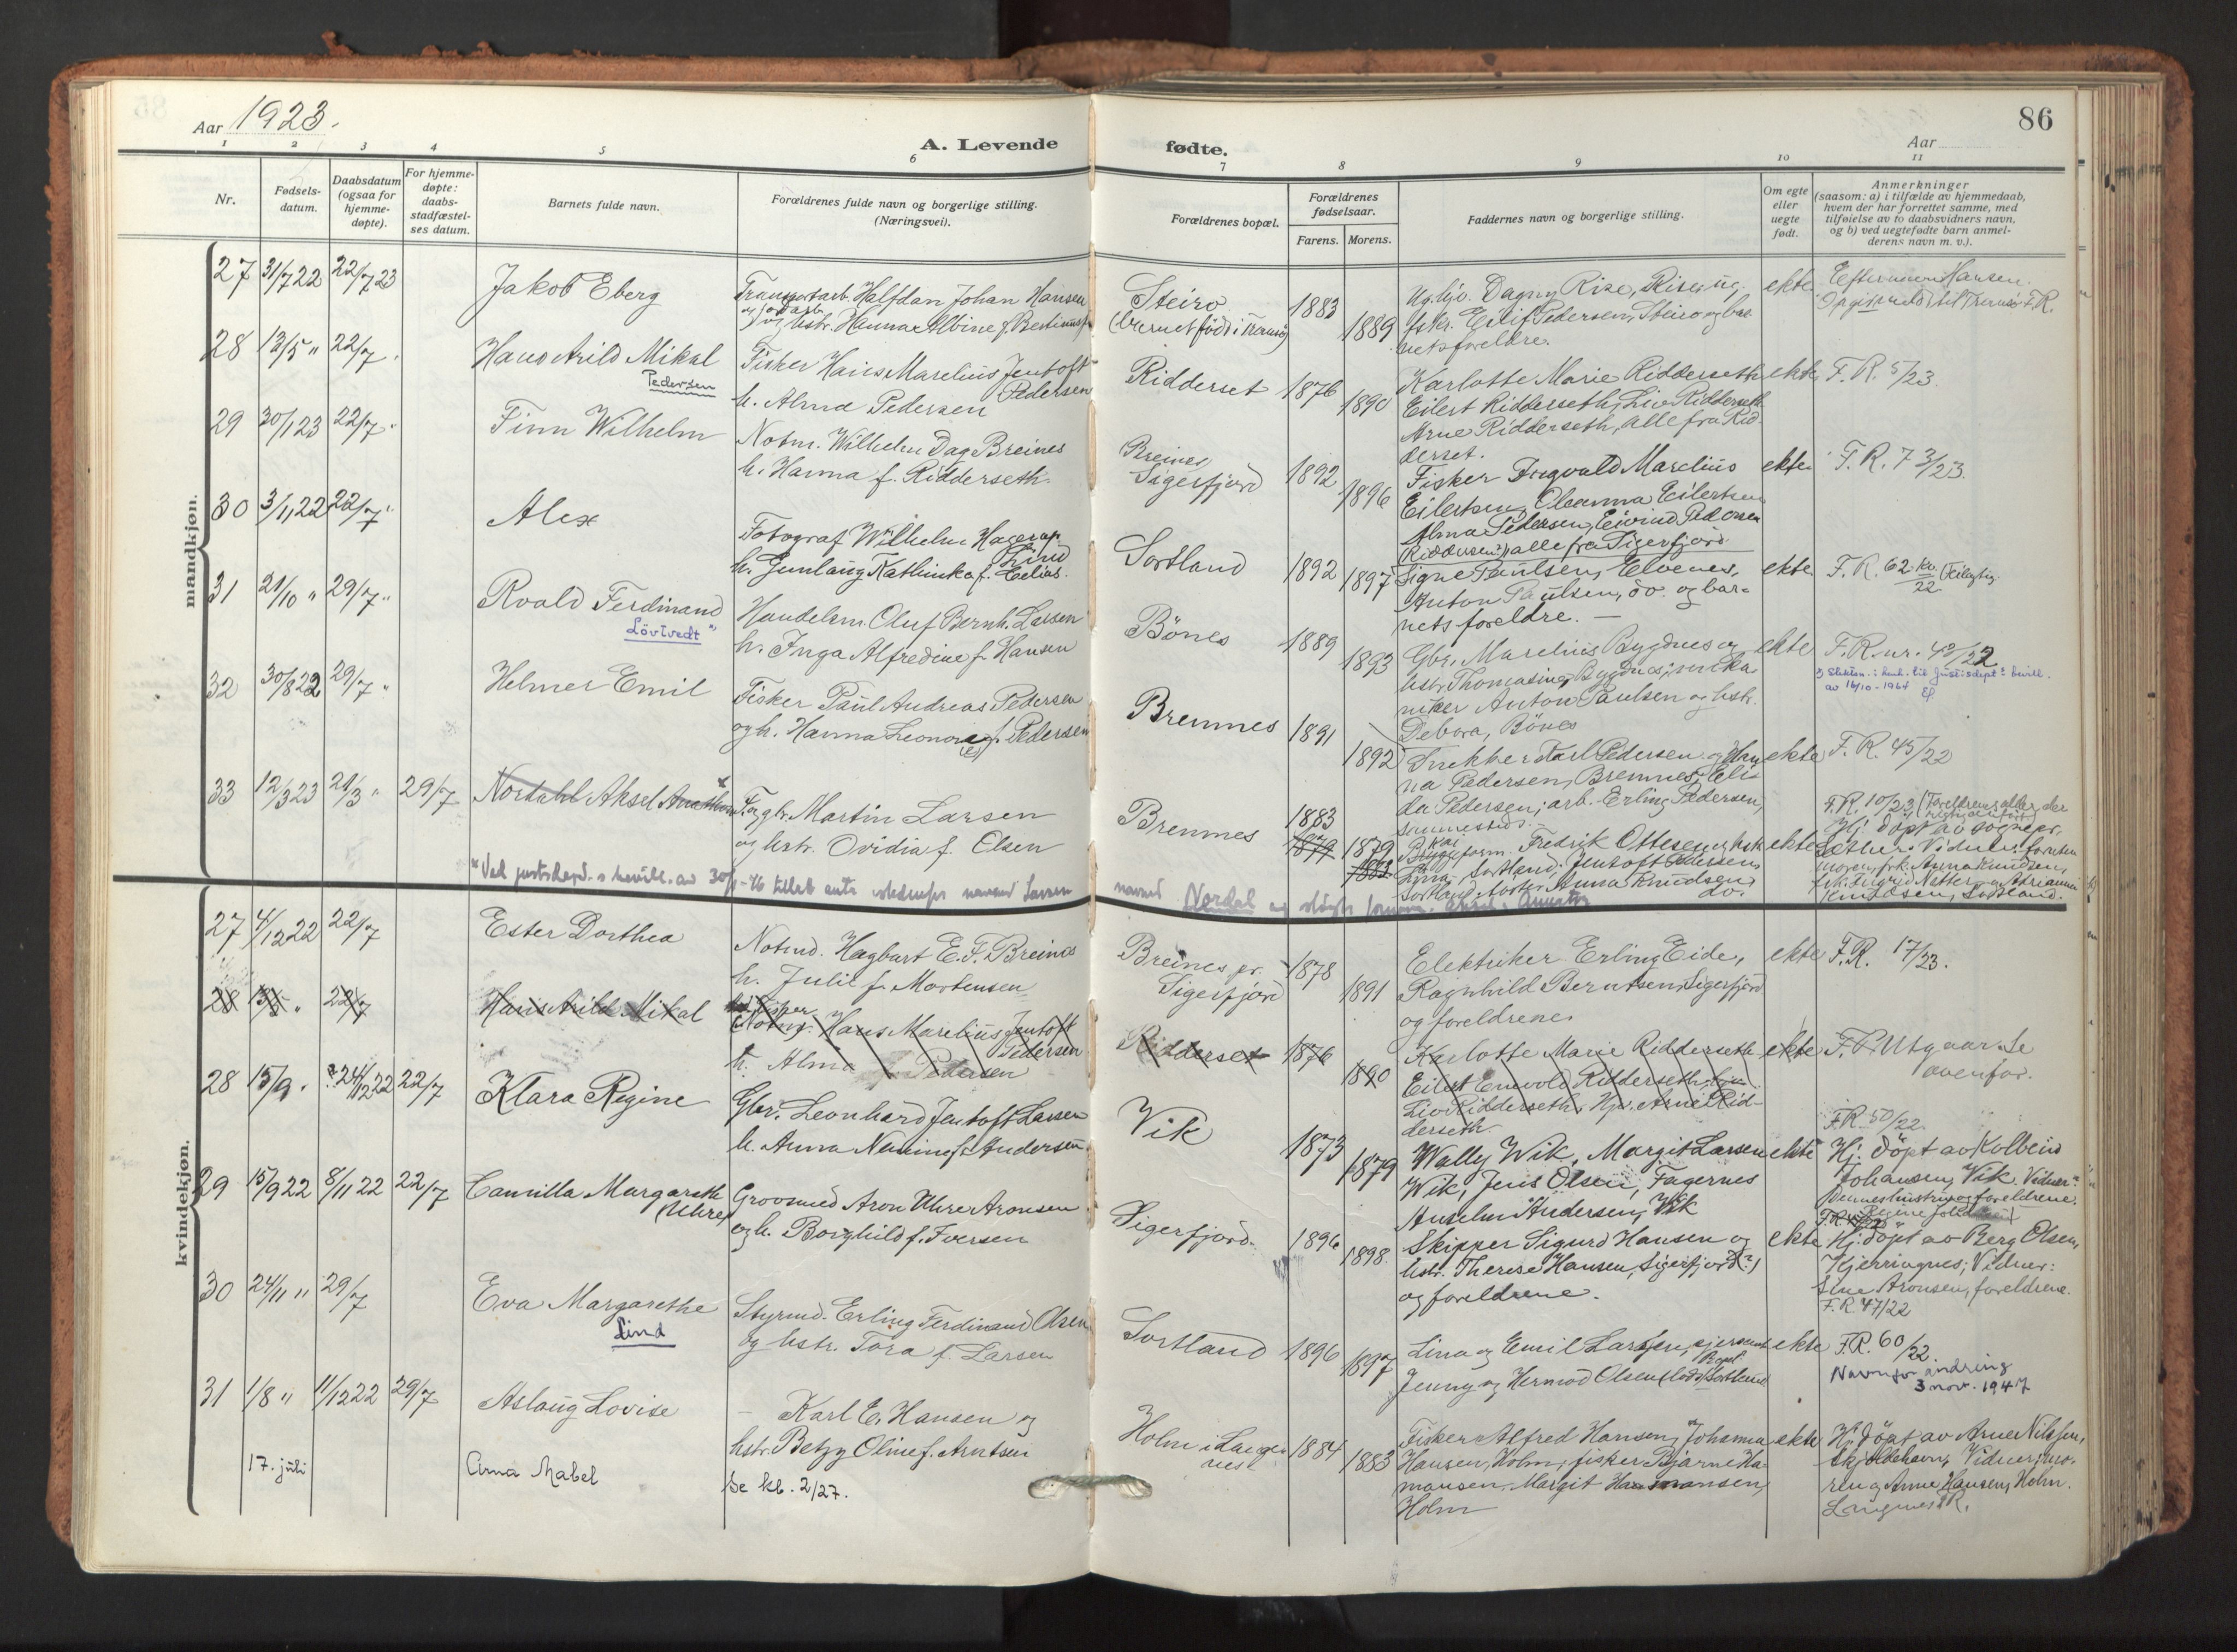 Aar 1923.
A. Levende
fødte.
86
Aar
1 2 3 4 5 6 7 8 9 10 11
Nr.
Fødsels-
datum.
Daabsdatum
(ogsaa for
hjemme-
døpte).
For hjemme-
døpte:
daabs-
stadfæstel-
ses datum.
Barnets fulde navn.
Forældrenes fulde navn og borgerlige stilling.
(Næringsvei).
Forældrenes bopæl.
Forældrenes
fødselsaar.
Farens. Morens.
Faddernes navn og borgerlige stilling.
Om egte
eller
uegte
født.
Anmerkninger
(saasom: a) i tilfælde av hjemmedaab,
hvem der har forrettet samme, med
tilføielse av to daabsvidners navn,
og b) ved uegtefødte barn anmel-
derens navn m. v.).
mandkjøn.
27 31/7 22 22/7 23
Jakob Eberg
Transportarb. Halfdan Johan Hansen
og hstr. Hanna Albine f. Bertinus
Steiro
(barnet född i Tromsö)
1883
1889
Ug. Dagny Rise, Rise, ug.
fskr. Eilif Pedersen, Steiro og bar
nets foreldre.
ekte
Efternavn Hansen.
28 13/5 " 22/7
Hans Arild Mikal
Pedersen
Fisker Hans Marelius Jentoft
Pedersen
h. Alma Pedersen
Ridderset
1876
1890
Karlotte Marie Ridderseth
Eilert Ridderseth, Liv Ridderseth
Arne Ridderseth, alle fra Rid
derset.
ekte
F. R. 5/23.
29 30/1 23 22/7 "
Finn Wilhelm
Notm. Wilhelm Dag Breines
h. Hanna f. Ridderseth.
Breines
Sigerfjord
1892
1896
Fisker Ingvald Marelius
Eilertsen, Oleanna Eilertsen
Alma Pedersen, Eivind Pedersen
alle fra Sigerfjord
ekte
F. R. 7 3/23.
30 3/11 22 22/7 "
Alex
Fotograf Wilhelm Hagerup
Lind
h. Gunlaug Kathinka f. Elias.
Sortland
1892
1897
Signe Paulsen, Elvenes,
Anton Paulsen, do. og bar=
nets foreldre. —
ekte
F. R. 62
22
31 21/10 " 29/7 "
Roald Ferdinand
Lövtvedt "
Handelsm. Oluf Bernh. Larsen
h. Inga Alfredine f. Hansen
Bönes
1889
1893
Gbr. Marelius Bygdnes og
hstr. Thomasine Bygdnes; meka
niker Anton Paulsen og hstr.
Debora, Bönes
ekte
F. R. nr. 42/22
av 16/10 - 1964
32 30/8 22 29/7 "
Helmer Emil
Fisker Paul Andreas Pedersen
og h. Hanna Leonora f. Pedersen
Bremnes
1891
1892
Snekker Karl Pedersen og Han
na Pedersen, Bremnes; Eli
da Pedersen; arb. Erling Pedersen,
sammesteds.
ekte
F. R. 45/22
33 12/3 23 21/3 " 29/7
Nordahl Aksel
Martin Larsen
og hstr. Ovidia f. Olsen
Bremnes
1883
1879
1879
1883
Fredrik Ottesen og hstr.
Lina, Sortland; Jentoft Pedersen,
Sortland; Anna Knudsen,
do.
ekte
F. R. 10/23
Hj. döpt av sognepr.
Vidner:
frk. Anna Knudsen,
Knudsen, Sortland.
navnet Larsen
navnet Nordal
kvindekjøn.
27 4/12 22 22/7
Ester Dorthea
Notmd. Hagbart E. F. Breines
h. Julie f. Mortensen
Breines pr.
Sigerfjord
1878
1891
Elektriker Erling Eide,
Ragnhild Berntsen, Sigerfjord
og foreldrene.
ekte
F. R. 17/23.
28 13/5 " 22/7
Hans Arild Mikal
Fisker
Notm. Hans Marelius Jentoft
Pedersen
h. Alma Pedersen
Ridderset
1876
1890
Karlotte Marie Ridderseth
Eilert Enevold Ridderseth,
Liv Ridderseth, Arne Rid-
derseth
ekte
F. R. Utgaar. Se
ovenfor.
28 15/9 " 24/12 22 22/7
Klara Regine
Gbr. Leonhard Jentoft Larsen
h. Anna Nanine f. Andersen
Vik
1873
1879
Wally Wik, Margit Larsen
Wik, Jens Olsen, Fagernes
Anselm Andersen, Vik
ekte
F. R. 50/22.
Hj. döpt av Kolbein
Johansen, Vik. Vidner:
foreldrene.
29 15/9 22 8/11 22 22/7
Camilla Margareth
(Uhre)
Grovsmed Aron Uhre Aronsen
og h. Borghild f. Iversen
Sigerfjord.
1896
1898.
Skipper Sigurd Hansen og
hstr. Therese Hansen, Sigerfjord
og foreldrene.
ekte
Hj. döpt av Berg Olsen,
Kjerringnes; Vidner:
Aronsen, foreldrene.
F. R. 47/22
30 24/11 " 29/7
Eva Margarethe
Lind
Styrmd. Erling Ferdinand Olsen
og hstr. Tora f. Larsen
Sortland
1896
1897
Lina og Emil Larsen,
Jenny og Hermod Olsen
ekte
F.R. 60/22.
Navnforandring
3 nov. 1947
31 1/8 " 11/12 22 29/7
Aslaug Lovise
– Karl E. Hansen og
hstr. Betzy Oline f. Arntsen
Holm i Lange
nes
1884
1883
Fisker Alfred Hansen, Johanna
Hansen, Holm; fisker Bjarne Ha
mansen, Margit Hamansen,
Holm
ekte
Hj. döpt av Arne Nilssen,
Skjoldehavn, Vidner: mo-
ren og Anna Hansen, Holm.
17. juli
Arna Mabel
Se kb. 2/27.